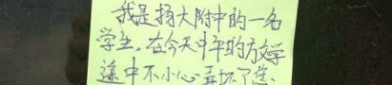 我是扬大附中的一名
学生,在今天中午的放学
途中不小心弄坏了您